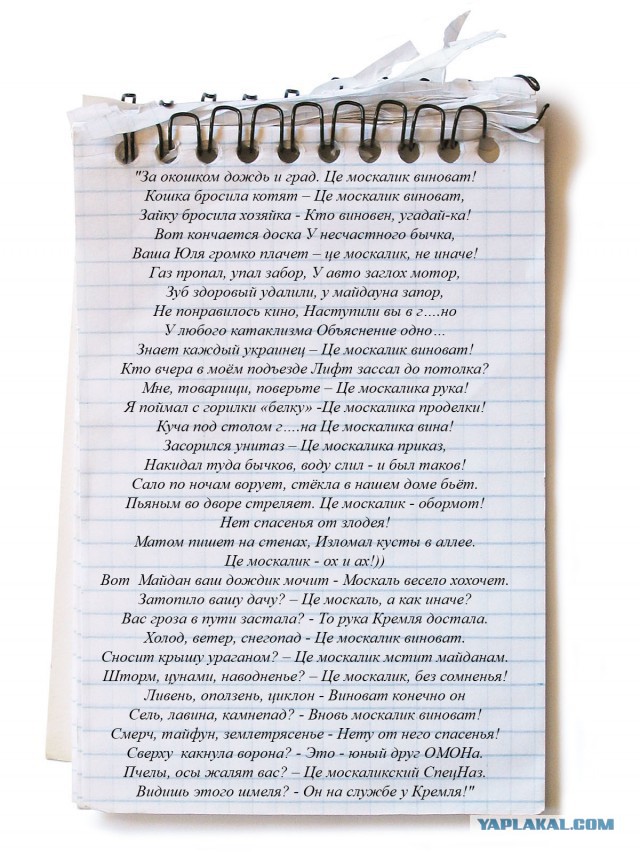 "За окошком дождь и град. Це москалик виноват!
Кошка бросила котят – Це москалик виноват,
Зайку бросила хозяйка - Кто виновен, угадай-ка!
Вот кончается доска У несчастного бычка,
Ваша Юля громко плачет – це москалик, не иначе!
Газ пропал, упал забор, У авто заглох мотор,
Зуб здоровый удалили, у майдауна запор,
Не понравилось кино, Наступили вы в г....но
У любого катаклизма Объяснение одно…
Знает каждый украинец – Це москалик виноват!
Кто вчера в моём подъезде Лифт зассал до потолка?
Мне, товарищи, поверьте – Це москалика рука!
Я поймал с горилки «белку» -Це москалика проделки!
Куча под столом г....на Це москалика вина!
Засорился унитаз – Це москалика приказ,
Накидал туда бычков, воду слил - и был таков!
Сало по ночам ворует, стёкла в нашем доме бьёт.
Пьяным во дворе стреляет. Це москалик - обормот!
Нет спасенья от злодея!
Матом пишет на стенах, Изломал кусты в аллее.
Це москалик - ох и ах!))
Вот  Майдан ваш дождик мочит - Москаль весело хохочет.
Затопило вашу дачу? – Це москаль, а как иначе?
Вас гроза в пути застала? - То рука Кремля достала.
Холод, ветер, снегопад - Це москалик виноват.
Сносит крышу ураганом? – Це москалик мстит майданам.
Шторм, цунами, наводненье? – Це москалик, без сомненья!
Ливень, оползень, циклон - Виноват конечно он
Сель, лавина, камнепад? - Вновь москалик виноват!
Смерч, тайфун, землетрясенье - Нету от него спасенья!
Сверху  какнула ворона? - Это - юный друг ОМОНа.
Пчелы, осы жалят вас? – Це москаликский СпецНаз.
Видишь этого шмеля? - Он на службе у Кремля!"
YAPLAKAL.COM